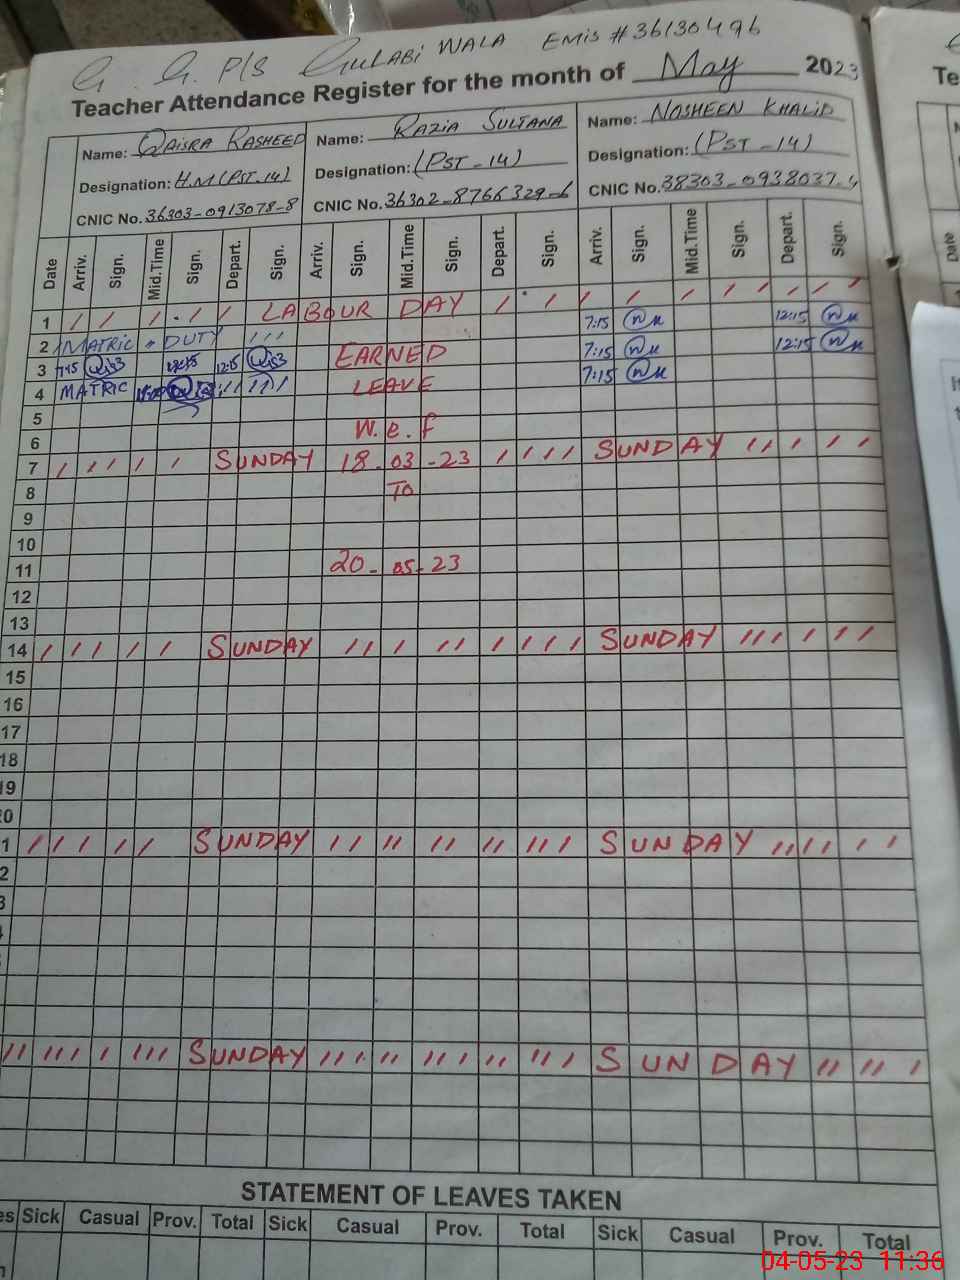 G. G. P/S GULABI WALA EMIS # 36130496
Teacher Attendance Register for the month of May 2023
Name: QAISRA RASHEED Name: RAZIA SULTANA Name: NOSHEEN KHALID
Designation: H.M (PST-14) Designation: (PST-14) Designation: (PST-14)
CNIC No. 36303-0913078-8 CNIC No. 36302-8766329-6 CNIC No. 38303-0938037-4
Date Arriv. Sign. Mid.Time Sign. Depart. Sign. Arriv. Sign. Mid.Time Sign. Depart. Sign. Arriv. Sign. Mid.Time Sign. Depart. Sign.
1 LABOUR DAY
2 MATRIC DUTY 7:15 12:15
3 7:45 12:15 EARNED 7:15 12:15
4 MATRIC LEAVE 7:15
5
6 W.e.f
7 SUNDAY 18-03-23 SUNDAY
8 TO
9
10
11 20-05-23
12
13
14 SUNDAY SUNDAY
15
16
17
18
19
0
1 SUNDAY SUNDAY
2
3
SUNDAY SUNDAY
STATEMENT OF LEAVES TAKEN
es Sick Casual Prov. Total Sick Casual Prov. Total Sick Casual Prov. Total
04-05-23 11:36